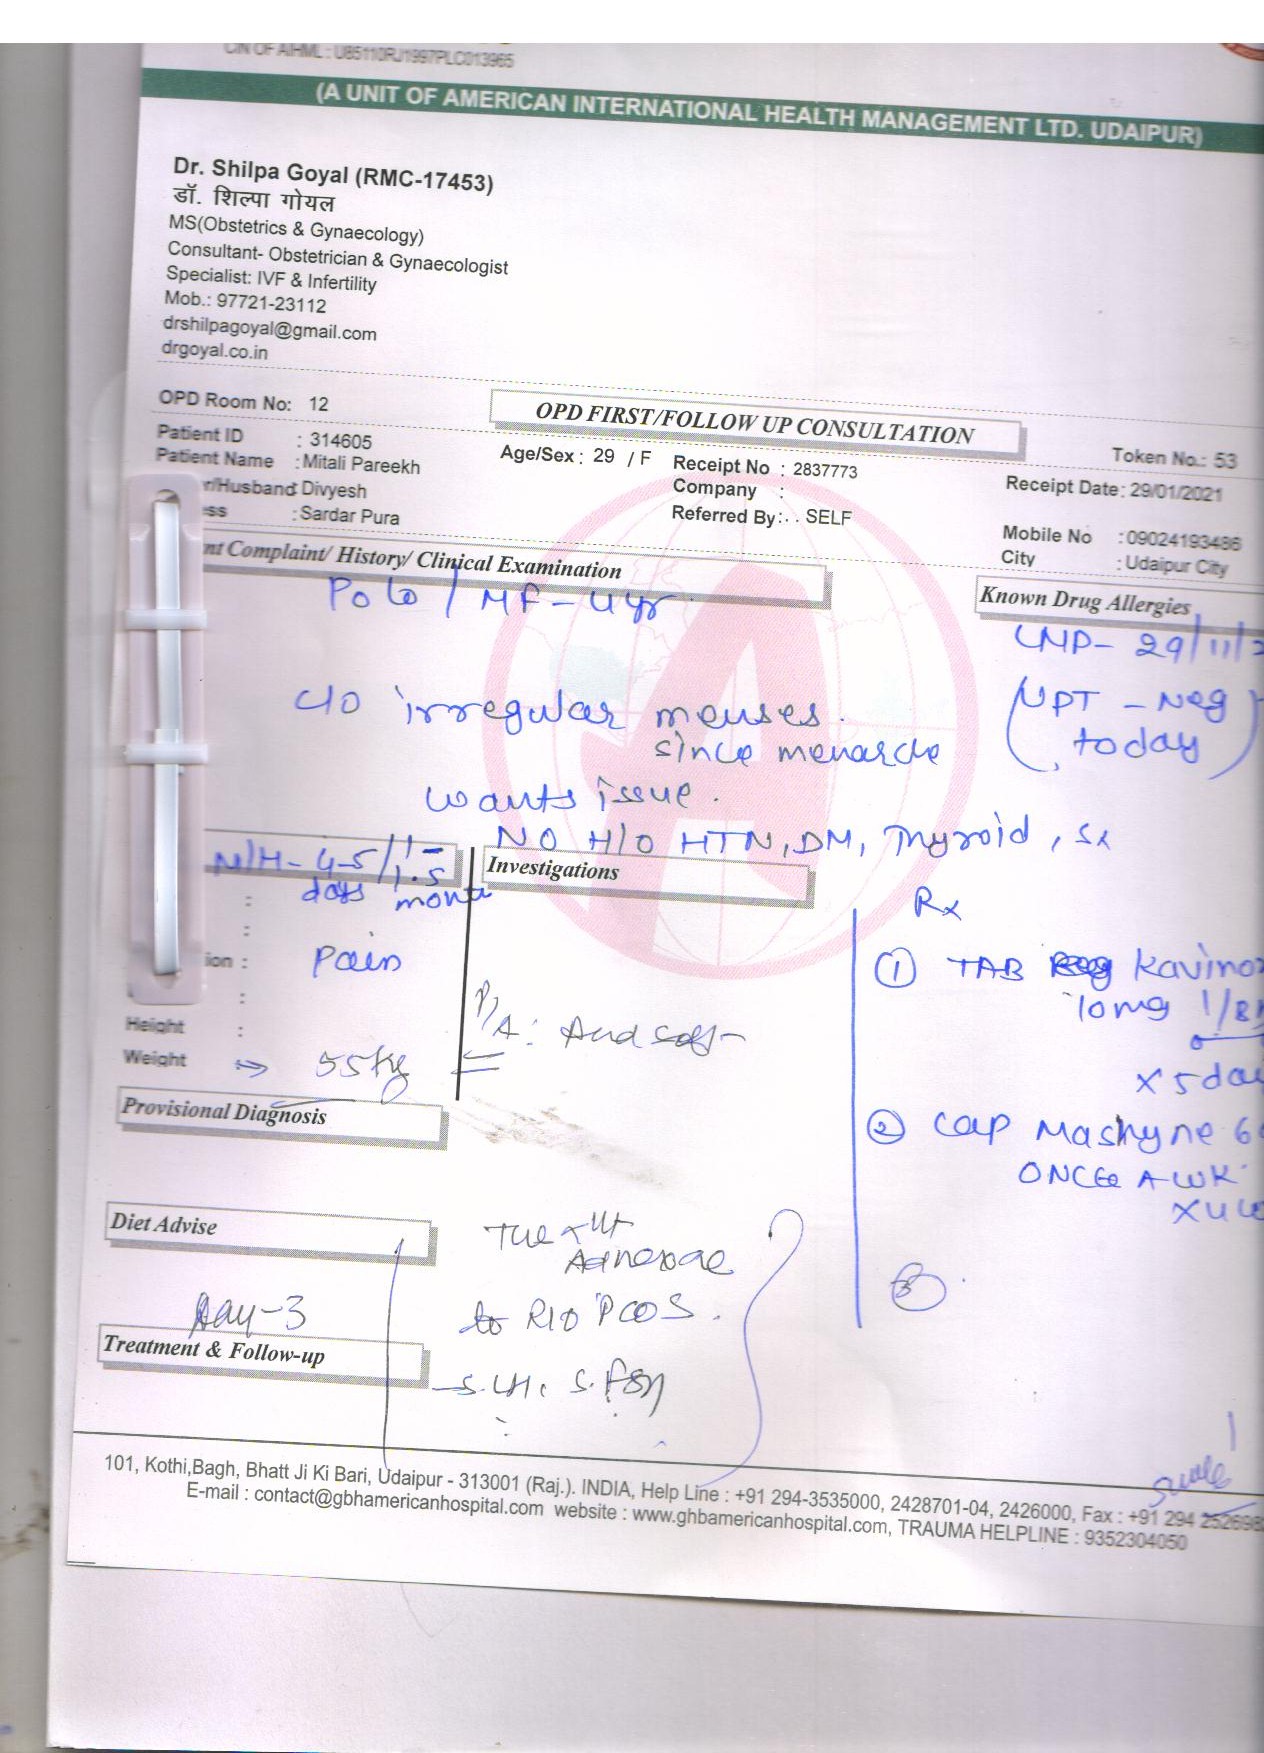 CIN OF AIHML : U85110RJ1997PLC013965
(A UNIT OF AMERICAN INTERNATIONAL HEALTH MANAGEMENT LTD. UDAIPUR)
Dr. Shilpa Goyal (RMC-17453)
डॉ. शिल्पा गोयल
MS(Obstetrics & Gynaecology)
Consultant- Obstetrician & Gynaecologist
Specialist: IVF & Infertility
Mob.: 97721-23112
drshilpagoyal@gmail.com
drgoyal.co.in
OPD Room No: 12
OPD FIRST/FOLLOW UP CONSULTATION
Token No.: 53
Patient ID : 314605
Age/Sex : 29 / F Receipt No : 2837773
Receipt Date: 29/01/2021
Patient Name : Mitali Pareekh
Company :
r/Husband Divyesh
Referred By: . . SELF
Mobile No : 09024193486
ss : Sardar Pura
City : Udaipur City
nt Complaint/ History/ Clinical Examination
Known Drug Allergies
P0L0 / MF - 4yr
LMP- 29/11/2
c/o irregular menses.
since menarche
(UPT - Neg today)
wants issue.
NO H/O HTN, DM, Thyroid, Sx
M/H- 4-5/1-1.5
days month
Investigations
Rx
ion : Pain
① TAB Kavinor
10mg 1/B
x 5 day
P/A:
Height :
Weight → 55kg
Provisional Diagnosis
② Cap Mashyne 6
ONCE A WK
x 4 w
Diet Advise
Adnexae
to R/O PCOS.
Day-3
S. LH, S. FSH
③
Treatment & Follow-up
101, Kothi,Bagh, Bhatt Ji Ki Bari, Udaipur - 313001 (Raj.). INDIA, Help Line : +91 294-3535000, 2428701-04, 2426000, Fax : +91 294 252698
E-mail : contact@gbhamericanhospital.com website : www.ghbamericanhospital.com, TRAUMA HELPLINE : 9352304050